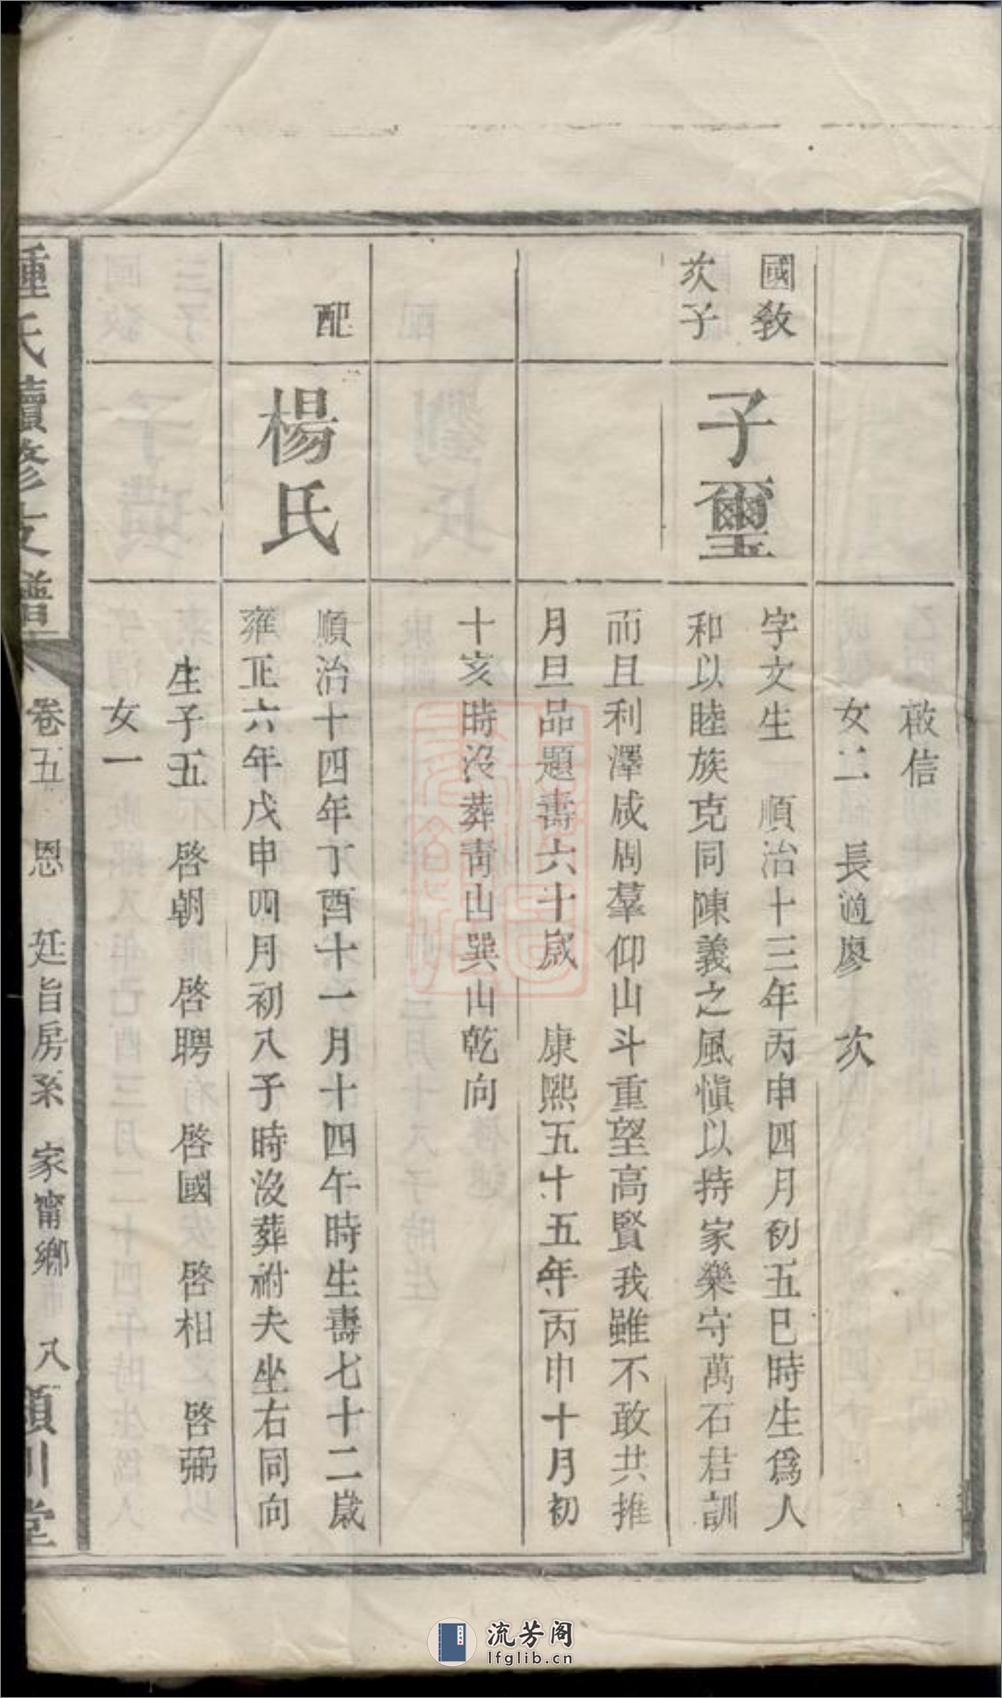 啟信
女二　長適廖　次
國教
次子
子璽
字文生　順治十三年丙申四月初五巳時生爲人
和以睦族克同陳義之風愼以持家樂守萬石君訓
而且利澤咸周羣仰山斗重望高賢我雖不敢共推
月旦品題壽六十歲　康熙五十五年丙申十月初
十亥時沒葬青山巽山乾向
配
楊氏
順治十四年丁酉十一月十四午時生壽七十二歲
雍正六年戊申四月初八子時沒葬祔夫坐右同向
生子五　啓朝　啓聘　啓國　啓相　啓弼
女一
鍾氏續修支譜
卷五　恩　廷旨房系　家甯鄉　八
潁川堂
流芳阁
lfglib.cn